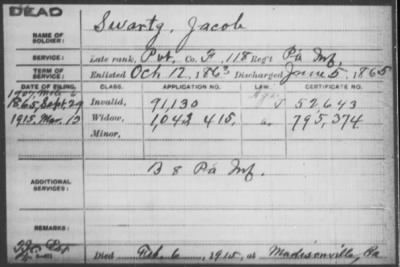 DEAD
NAME OF SOLDIER: Swartz, Jacob
SERVICE: Late rank, Pvt. Co. F, 118 Reg't Pa Inf.
TERM OF SERVICE: Enlisted Oct 12, 186 Discharged June 5, 1865
DATE OF FILING. CLASS. APPLICATION NO. LAW. CERTIFICATE NO.
1865, Sept. 29 Invalid, 91,130 52,643
1915, Mar. 13 Widow, 1,042,415, 795,374
Minor,
ADDITIONAL SERVICES: B 8 Pa Inf.
REMARKS:
Died Feb. 6, 1915, at Madisonville, Pa